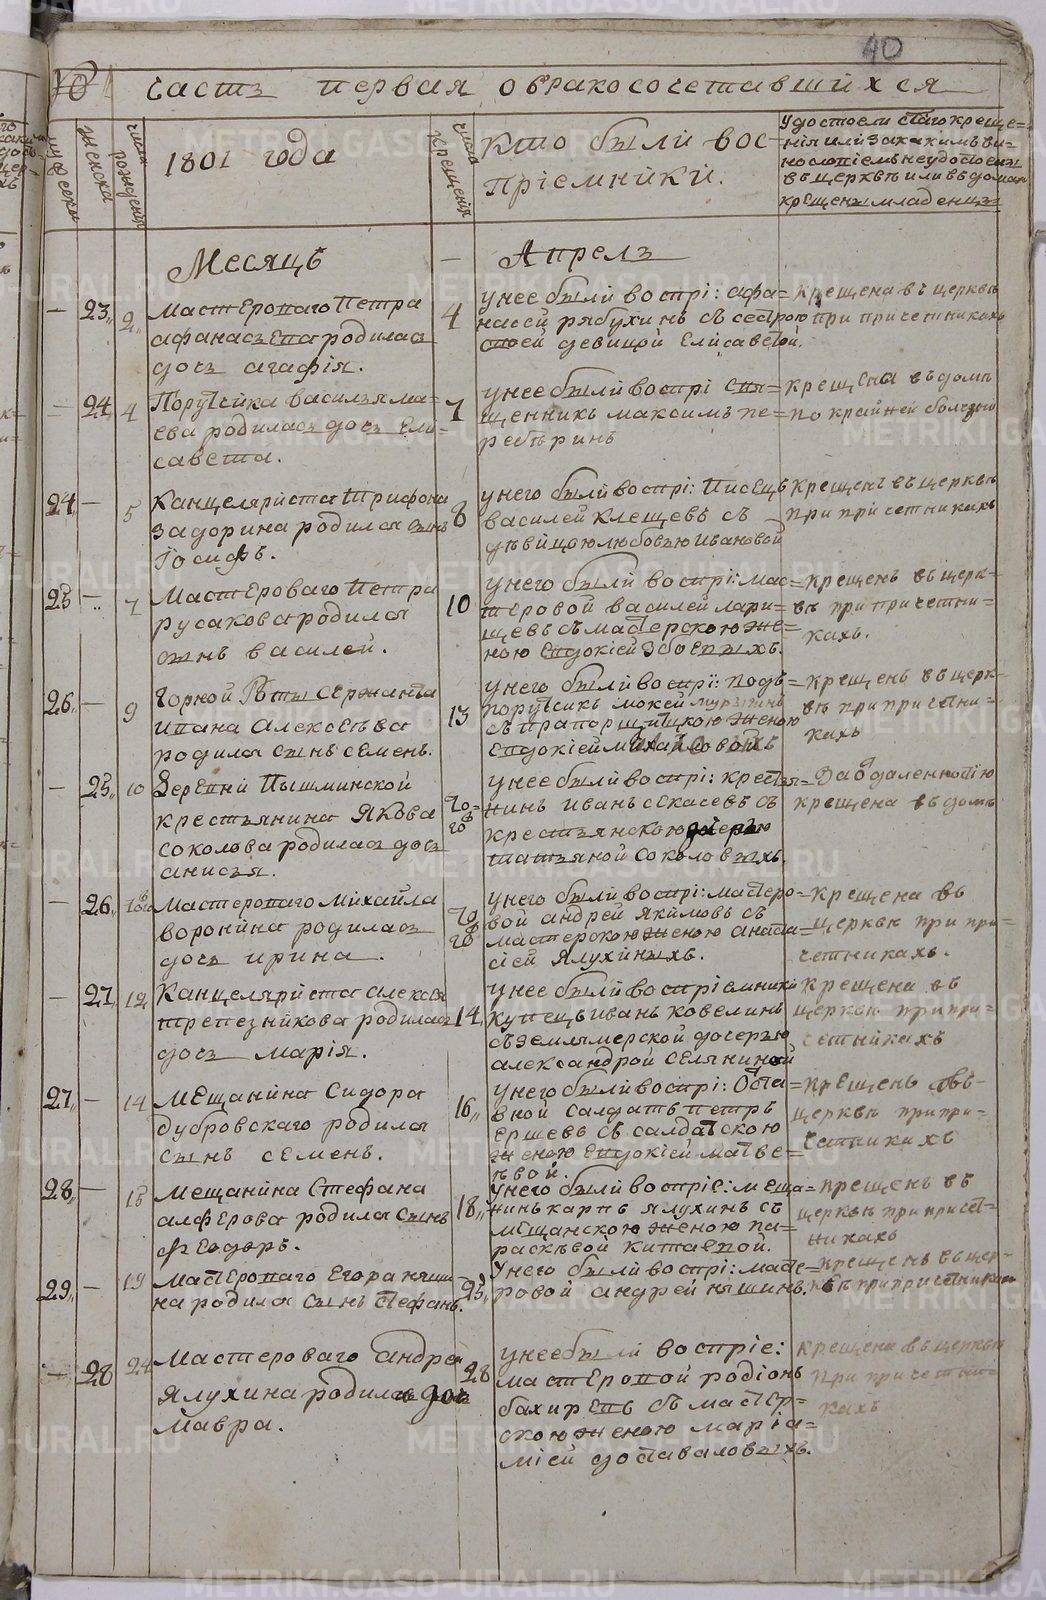 40
часть первая обракосочетавшихся
муск
женска
число рождения
1801 года
число крещения
кто были вос-
приемники.
удостоен стаго креще=
ния или за какимъ ви=
въ церкве или въ домахъ
крещенъ младенецъ
Месяцъ — Апрель
— 23,, 2,, Мастероваго Петра
афанасьева родилась
дочь агафия.
4
у нее были воспри: афа=
насей рябухинъ съ сестрою
своей девицой Елисаветой.
крещена въ церкве
при причетникахъ
— 24 4 Поручика василья ма=
ева родилась дочь Ели=
савета.
7
у нее были воспри свя=
щенникъ максимъ пе=
ребѣринъ
крещена въ доме
по крайней болезни
24 — 5 Канцеляриста Трифона
задорина родился сынъ
Иосифъ.
8
у него были воспри: Писецъ
василей клещевъ съ
дѣвицою любовью ивановой
крещенъ въ церкве
при причетникахъ
25 — 7 Мастероваго Петра
русакова родился
сынъ василей.
10
у него были воспри: мас=
теровой василей лари=
щевъ съ мастерскою же=
ною Евдокией збоевыхъ.
крещенъ въ церк=
ве при причетни=
кахъ.
26 — 9 Горной Роты Сержанта
ивана алексеева
родился сынъ семенъ.
13
у него были воспри: подъ=
порутчикъ мокей
съ прапорщицкою женою
Евдокией михайловой
крещенъ въ церк=
ве при причетни=
кахъ
— 25,, 10 Деревни Пышминской
крестьянина Якова
соколова родилась дочь
анисья.
20=
го
у нее были воспри: кресть=
нинъ иванъ секасевъ съ
крестьянскою дочерью
татьяной соколовыхъ.
За отдаленностию
крещена въ доме
— 26,, Мастероваго михаила
воронина родилась
дочь ирина.
20
го
у него были воспри: мастеро=
вой андрей якимовъ съ
мастерскою женою анаста=
сией ялухиныхъ.
крещена въ
церкве при при=
четникахъ.
— 27 12 Канцеляриста алексея
трепезникова родилась
дочь мария.
14
у нее были восприемники
купецъ иванъ ковелинъ
съ землямерской дочерью
александрой селяниной
крещена въ
церкве при при=
четникахъ
27,, — 14 мещанина Сидора
дубровскаго родился
сынъ семенъ.
16,,
у него были воспри: Отста=
вной салдатъ петръ
ершевъ съ салдатскою
женою евдокией матве=
ѣвой.
крещенъ въ=
церкве при при=
четникахъ
28,, — 15 мещанина Стефана
алферова родился сынъ
федоръ.
18,,
у него были восприе: меща=
нинъ карпъ ялухинъ съ
мещанскою женою па=
раскѣвой китаевой.
крещенъ въ
церкве при причет=
никахъ
29,, — 19 мастероваго егора няши=
на родился сынъ стефанъ.
25,,
у него были воспри: масте=
ровой андрей няшинъ.
крещенъ въ цер=
кве при причетникахъ
— 28 24 мастероваго андрея
ялухина родилась дочь
мавра.
28
у нее были восприе:
мастеровой родионъ
бахиревъ съ мастер=
скою женою мариа=
мией доставаловыхъ.
крещена въ церкве
при причетни=
кахъ
METRIKI.GASO-URAL.RU